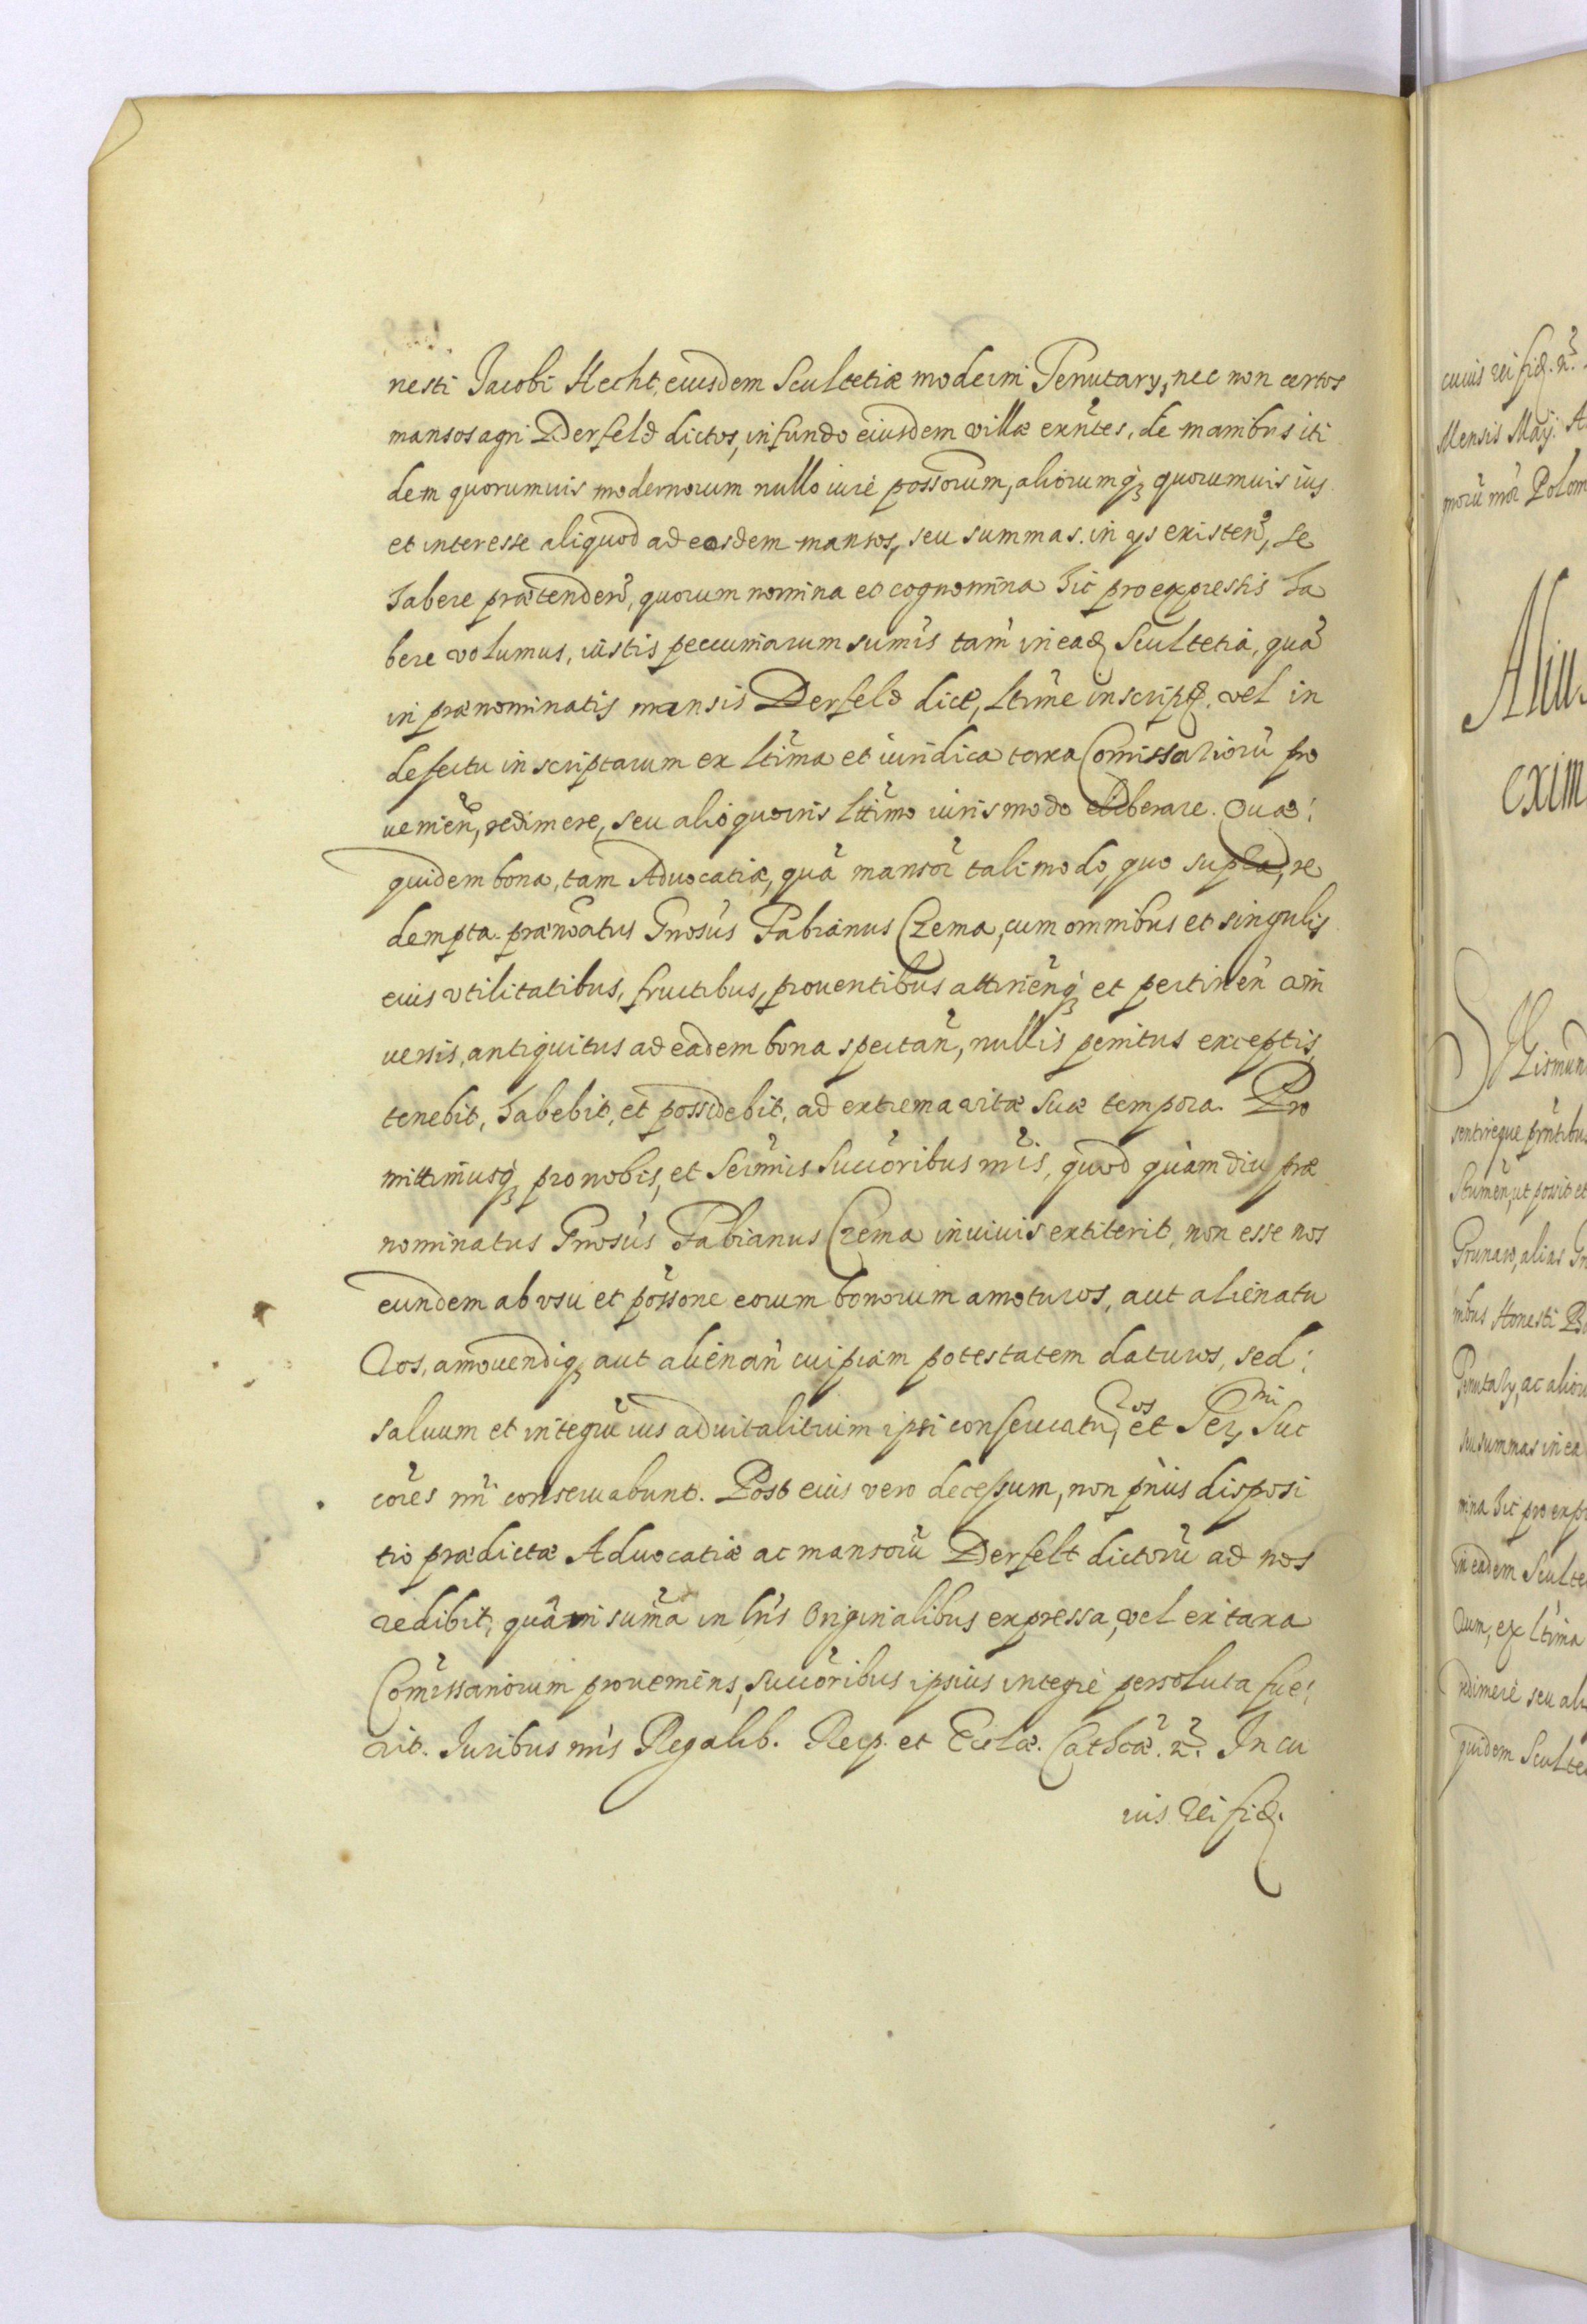 nesti Jacobi Hecht, eiusdem Scultetiæ moderni Tenutarÿ, nec non certos
mansos agri Derfeld dictos, in fundo eiusdem villæ exñtes, de manibus iti
dem quorumuis modernorum nullo iure possorum, aliorumq; quorumuis ius
et interesse aliquod ad eosdem mansos, seu summas in ijs existeñ, se
habere prætendeñ, quorum nomina et cognomina hic pro expressis ha
bere volumus, iustis pecuniarum sumis tam in ead. Scultetia, quã
in prænominatis mansis Derfeld dict, ltime inscript. vel in
defectu inscriptarum ex ltima et iuridica taxa Comissariorũ pro
uenień, redimere, seu alio quouis lttimo iuris modo eliberare. Quæ
quidem bona, tam Aduocatiæ, quã mansor tali modo, quo supra, re
dempta prænoatus Gnosus Fabianus Czema, cum omnibus et singulis
eius vtilitatibus, fructibus, prouentibus attineñq; et pertineñ vni
uersis, antiquitus ad eadem bona spectañ, nullis penitus exceptis,
tenebit, habebit, et possidebit, ad extrema vitæ suæ tempora. Pro
mittimusq; pro nobis, et Seĩmis Succoribus nr̃is, quod quam diu præ
nominatus Gnosus Fabianus Czema in viuis extiterit, non esse nos
eundem ab vsu et possone eorum bonorum amoturos, aut alienatu
ros, amouendiq; aut alienañ cuipiam potestatem daturos, sed
saluum et integrũ ius aduitalitium ipsi conseruaturos, et Sermi Suc
cores nr̃i conseruabunt. Post eius vero decessum, non prius disposi
tio prædictæ Aduocatiæ ac mansorũ Derfelt dictorũ ad nos
redibit, quam suma in lris Originalibus expressa, vel ex taxa
Comissariorum proueniens, succoribus ipsius integre persoluta fue
rit. Juribus nr̃is Regalib. Reip. et Ecclæ. Cathcæ. &. In cu
ius rei fid.
cuius rei fid. &.
Mensis Maÿ. A
Polon
Aliu
exim
Sigismun
Grunaw, alias Gr
nibus Honesti
Tenutarÿ, ac alior
seu summas in ea
mina hic pro expr
in eadem Sculte
rum, ex ltima
redimere seu ali
quidem Sculte